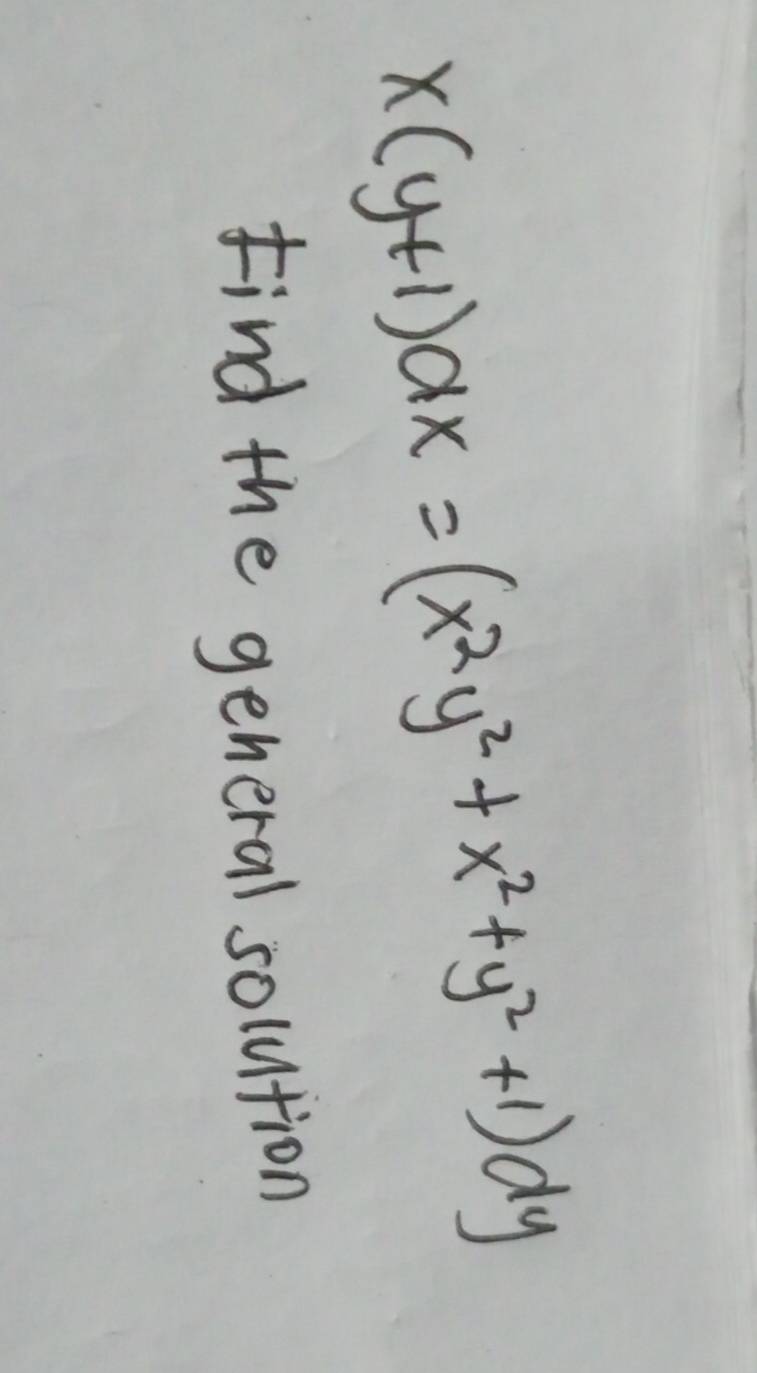 x(y+1)dx = (x²y² + x² + y² + 1)dy
Find the general solution